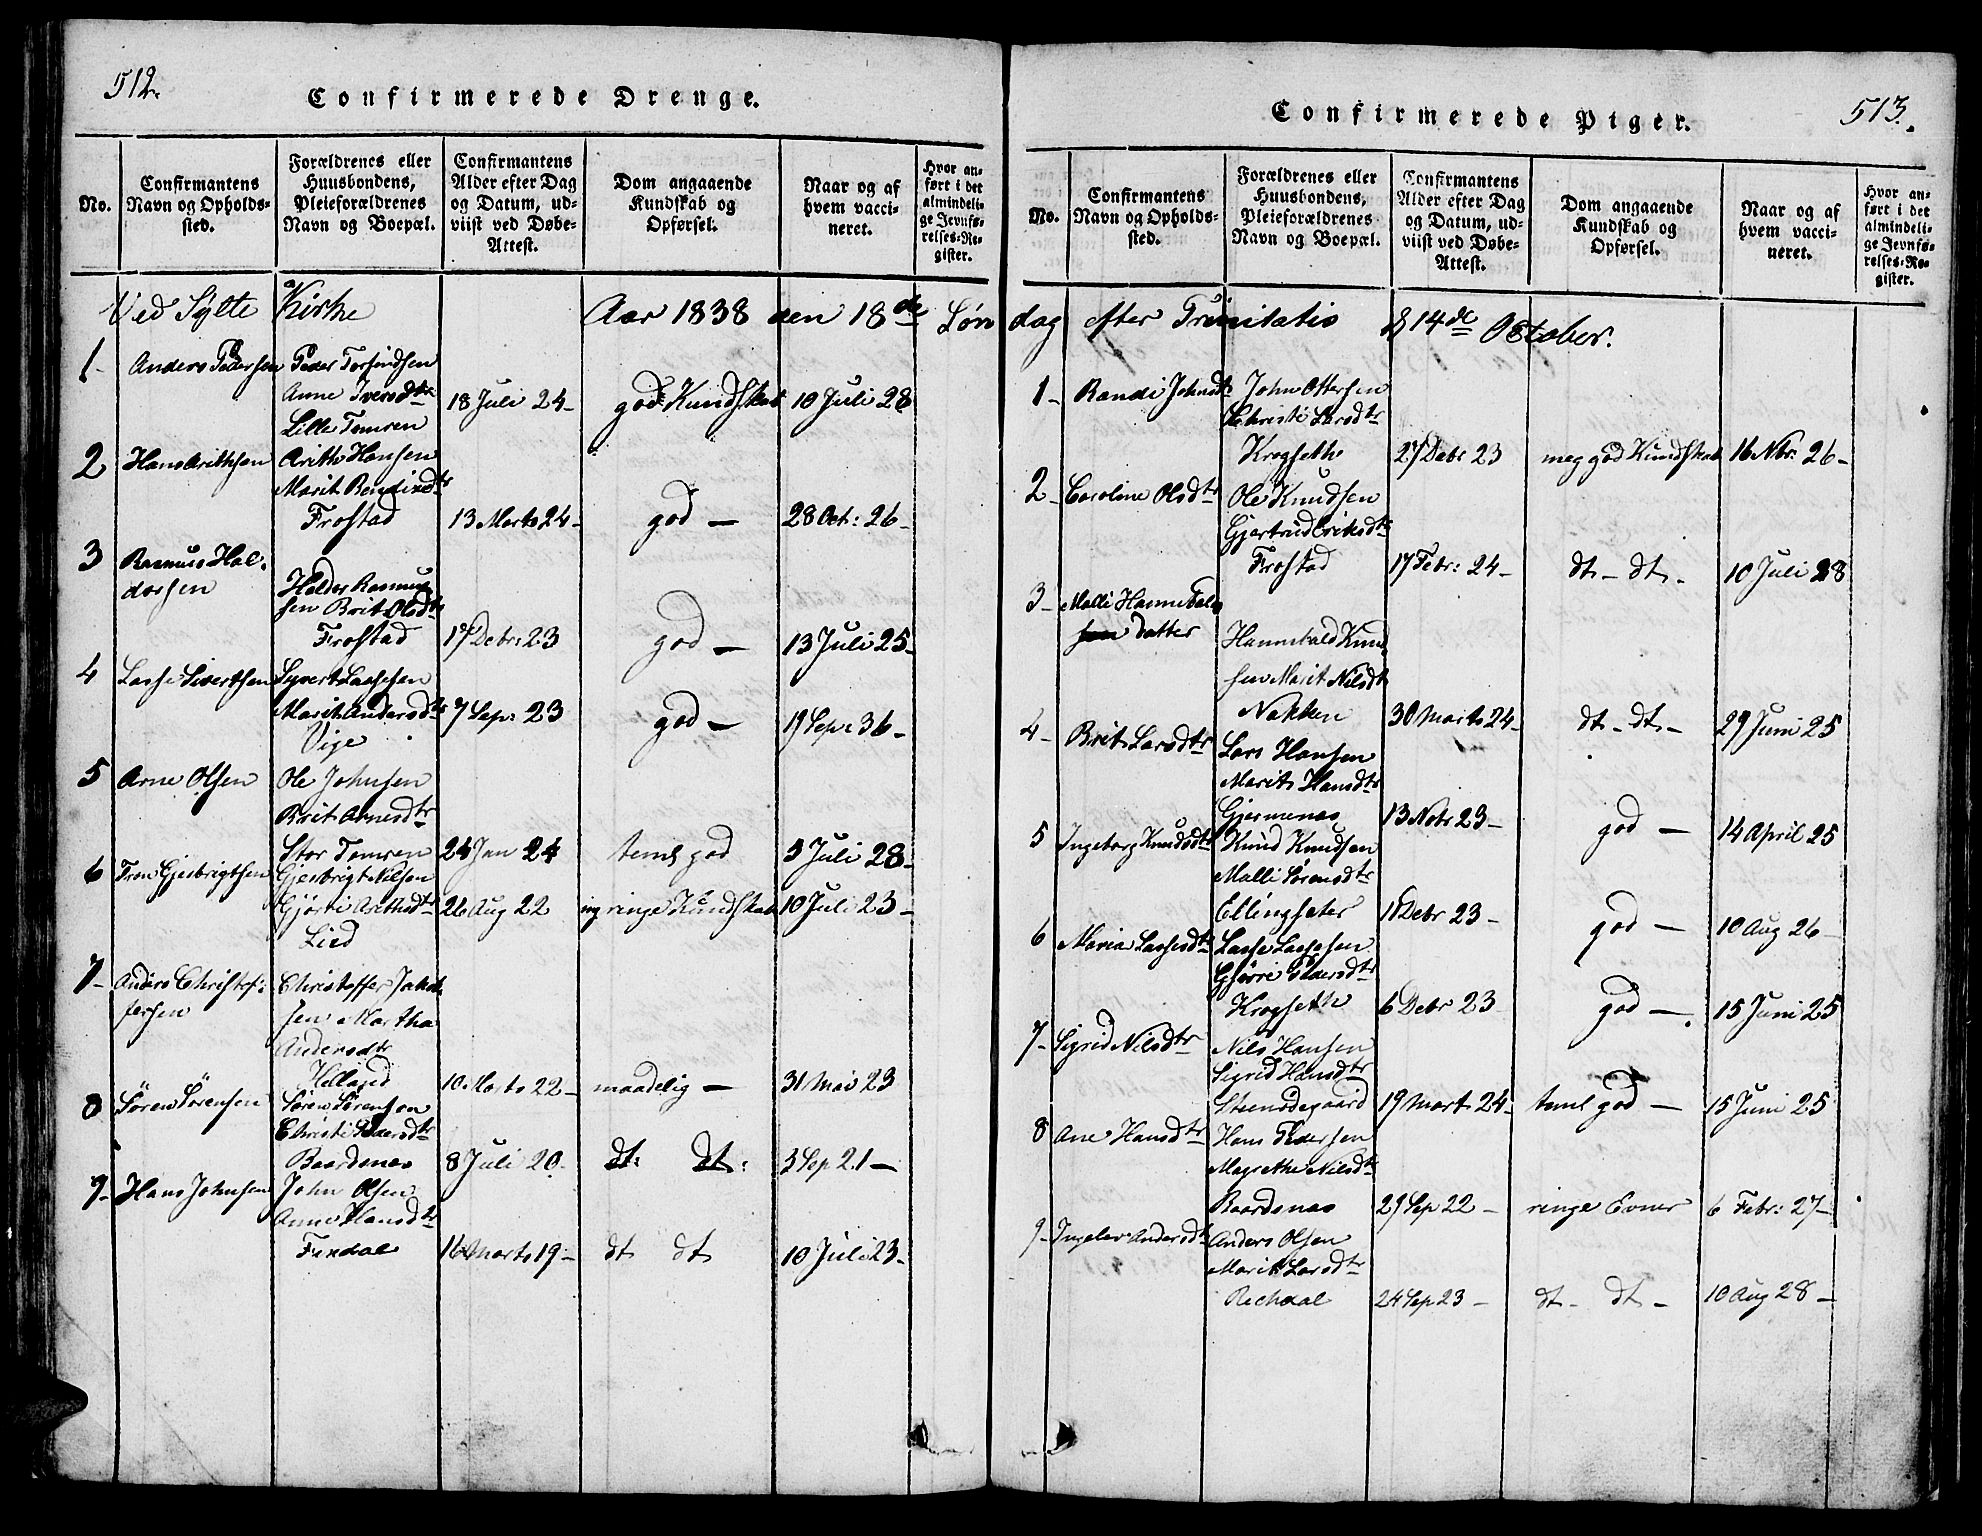 512.
Confirmerede Drenge.
No.
Confirmantens
Navn og Opholds-
sted.
Forældrenes eller
Huusbondens,
Pleieforældrenes
Navn og Boepæl.
Confirmantens
Alder efter Dag
og Datum, ud-
viist ved Døbe-
Attest.
Dom angaaende
Kundskab og
Opførsel.
Naar og af
hvem vacci-
neret.
Hvor an-
ført i det
almindeli-
ge Jevnfø-
relses-Re-
gister.
Ved Sylte Kirke Aar 1838 den 18de Søn
1- Anders Pedersen Peder Torfindsen
Anne Iversdtr 18 Juli 24- god Kundskab 10 Juli 28
Lille Tomren
2 Hans Arithsen Arith Hansen
Marit Bendixdtr
Frostad 13 Marts 24- god - 28 Oct: 26-
3 Rasmus Hal-
dorsen Haldor Rasmus
sen Brit Olsdtr
Frostad 17 Debr: 23 god - 13 Juli 25-
4 Lasse Sivertsen Syvert Lassesen
Marit Andersdtr 7 Sep: 23 god - 19 Sep: 36-
Vige
5 Arne Olsen Ole Johnsen
Brit Arnesdtr
Stor Tomren 24 Jan 24 teml god 5 Juli 28-
6 Gjesbrigtsen Gjesbrigt Nilsen
Gjørti Arithsdtr 26 Aug 22 mg ringe Kundskab 10 Juli 23-
Lied
7- Anders Christof-
fersen Christoffer Jakob
sen Martha
Andersdtr
Helland 10 Marts 22- maadelig - 31 Mai 23
8 Søren Sørensen Søren Sørensen
Christi Pedersdtr
Baardsnæs 8 Juli 20- dt: dt: 3 Sep 21-
9- Hans Johnsen John Olsen
Anne Hansdtr
Farstad 16 Marts 19- dt dt 10 Juli 23-
Confirmerede Piger.
513.
No.
Confirmantens
Navn og Opholds-
sted.
Forældrenes eller
Huusbondens,
Pleieforældrenes
Navn og Boepæl.
Confirmantens
Alder efter Dag
og Datum, ud-
viist ved Døbe-
Attest.
Dom angaaende
Kundskab og
Opførsel.
Naar og af
hvem vacci-
neret.
Hvor an-
ført i det
almindeli-
ge Jevnfø-
relses-Re-
gister.
dag efter Trinitatis d 14de October.
1- Randi Johnsdtr John Ottersen
Christi Larsdtr
Krogseth 27 Debr 23 meg god Kundskab 16 Nbr: 26-
2- Caroline Olsdtr Ole Knudsen
Gjertrud Eriksdtr
Frostad 17 Febr: 24- dt- dt- 10 Juli 28
3- Malli Hannibals
datter Hannibald Knud
sen Marit Nilsdtr
Nakken 30 Marts 24- dt- dt- 29 Juni 25
4- Brit Larsdtr Lars Hansen
Marit Hansdtr
Gjermenæs 13 Nobr 23- god - 14 April 25
5 Ingeborg Knudsdtr Knud Knudsen
Malli Sørensdtr
Ellingseter 18 Debr 23- god - 10 Aug 26-
6 Maria Lassesdtr Lasse Lassesen
Gjørri Pedersdtr
Krogseth 6 Debr 23 god - 15 Juni 25
7- Sigrid Nilsdtr Nils Hansen
Sigrid Hansdtr
Steensdegaard 19 Marts 24- teml god - 15 Juni 25
8 Ane Hansdtr Hans Pedersen
Magrethe Nilsdtr
Baardsnæs 29 Sep 22- ringe Evner 6 Febr: 27-
9- Ingelev Andersdtr Anders Olsen
Marit Larsdtr
Rechdal 24 Sep 23- dt- dt- 10 Aug 28-